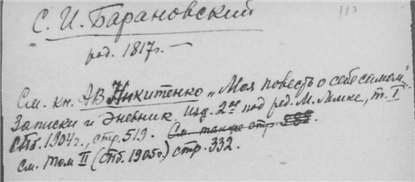 С. И. Барановский
род. 1817г. —
См. кн. АВ Никитенко „Моя повесть о себе самом".
Записки и Дневник. Изд. 2ое под ред. М. Лемке, т. I
СПб. 1904г., стр. 519. См. также стр.
См. Том II (СПб. 1905г) стр. 332.